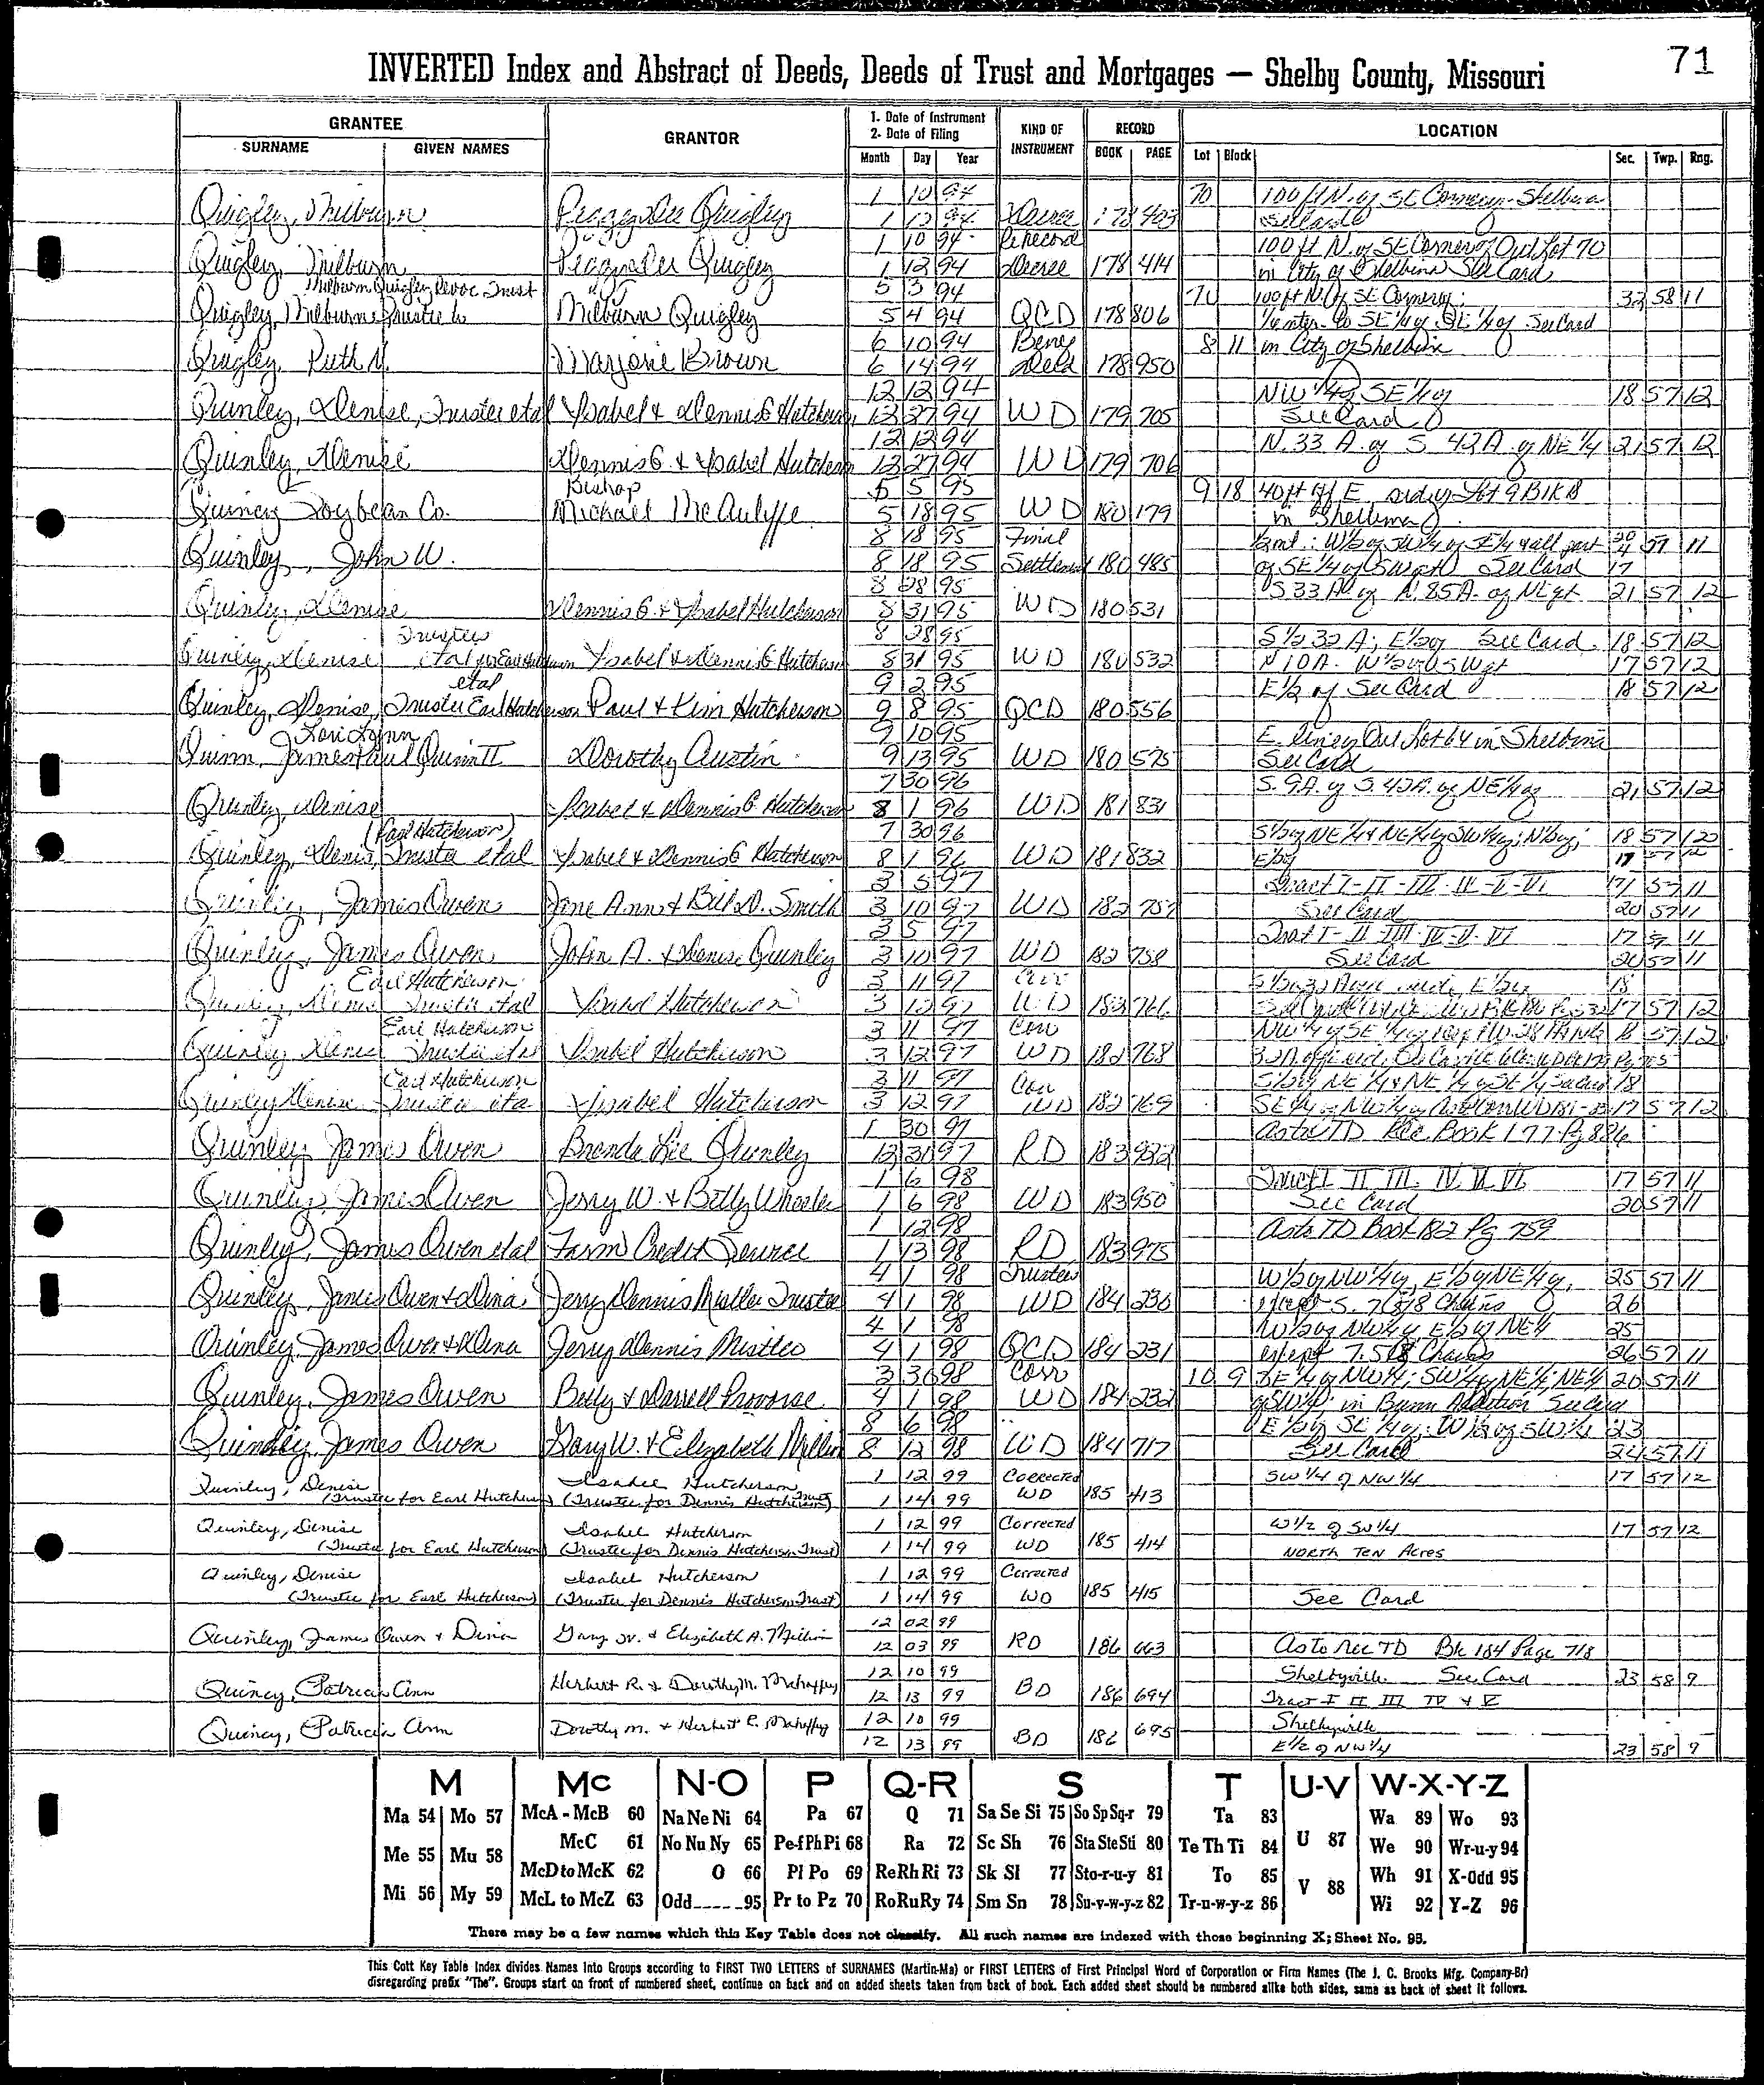 71
INVERTED Index and Abstract of Deeds, Deeds of Trust and Mortgages — Shelby County, Missouri
GRANTEE GRANTOR 1. Date of Instrument 2. Date of Filing KIND OF INSTRUMENT RECORD LOCATION
SURNAME GIVEN NAMES Month Day Year BOOK PAGE Lot Block Sec. Twp. Rng.
1 10 94 70 100 ft N. of SE Corner Shelbina
Quigley, Milburn Peggy Lee Quigley 1 12 94 Decree 178 403 See Card
1 10 94 Rerecord 100 ft N. of SE Corner of Out Lot 70
Quigley, Milburn Peggy Lee Quigley 1 12 94 Decree 178 414 in City of Shelbina See Card
Milburn Quigley Revoc Trust 5 3 94 70 100 ft N. of SE Corner of 32 58 11
Quigley, Milburn Trustee Milburn Quigley 5 4 94 QCD 178 806 SE 1/4 of SE 1/4 of See Card
6 10 94 Bene 8 11 in City of Shelbina
Quigley, Ruth Marjorie Brown 6 14 94 Deed 178 950
12 12 94 NW 1/4 of SE 1/4 of 18 57 12
Quinley, Denise, Trustee etal Ysabel & Dennis G Hutcherson 12 27 94 WD 179 705 See Card
12 12 94 N. 33 A. of S 42 A. of NE 1/4 21 57 12
Quinley, Denise Dennis G. & Ysabel Hutcherson 12 27 94 WD 179 706
Bishop 5 5 95 9 18 40 ft of E side of Lot 9 Blk 18
Quincy Soybean Co. Michael McAuliffe 5 18 95 WD 180 179 in Shelbina
8 18 95 Final W 1/2 of SW 1/4 of SE 1/4 & all part 20 57 11
Quinley, John W. 8 18 95 Settlement 180 485 of SE 1/4 of See Card 17
8 28 95 S 33 A of N. 85 A. of NE qt 21 57 12
Quinley, Denise Dennis G. & Ysabel Hutcherson 8 31 95 WD 180 531
Trustee 8 28 95 S 1/2 32 A; E 1/2 of See Card 18 57 12
Quinley, Denise etal Ysabel & Dennis G Hutcherson 8 31 95 WD 180 532 N 10 A. W 1/2 of SW qt 17 57 12
etal 9 2 95 E 1/2 of See Card 18 57 12
Quinley, Denise, Trustee Earl Hutcherson Paul & Kim Hutcherson 9 8 95 QCD 180 556
Lori Lynn 9 10 95 E. line of Out Lot 64 in Shelbina
Quinn, James Paul Quinn II Dorothy Austin 9 13 95 WD 180 575 See Card
7 30 96 S. 9 A. of S. 42 A. of NE 1/4 of 21 57 12
Quinley, Denise Ysabel & Dennis G. Hutcherson 8 1 96 WD 181 831
(Earl Hutcherson) 7 30 96 S 1/2 of NE 1/4 & NE 1/4 of SW 1/4 of; N 1/2 of; 18 57 12
Quinley, Denis, Trustee etal Ysabel & Dennis G Hutcherson 8 1 96 WD 181 832 E 1/2 of 17 57 12
3 5 97 Tract I - II - III - IV - V - VI 17 57 11
Quinley, James Owen Jane Ann & Bill D. Smith 3 10 97 WD 182 757 See Card 20 57 11
3 5 97 Tract I - II - III - IV - V - VI 17 57 11
Quinley, James Owen John A. & Denise Quinley 3 10 97 WD 182 758 See Card 20 57 11
Earl Hutcherson 3 11 97 Corr 18
Quinley, Denise Trustee etal Ysabel Hutcherson 3 12 97 WD 182 766 17 57 12
Earl Hutcherson 3 11 97 Corr NW 1/4 of SE 1/4 of 18 57 12
Quinley, Denise Trustee etal Ysabel Hutcherson 3 12 97 WD 182 768
Earl Hutcherson 3 11 97 Corr S 1/2 of NE 1/4 & NE 1/4 of SE 1/4 See Card 18
Quinley Denise Trustee etal Ysabel Hutcherson 3 12 97 WD 182 769 SE 1/4 of NW 1/4 17 57 12
1 30 97 As to TD Rec. Book 177 Pg 886
Quinley, James Owen Brenda Lee Quinley 12 31 97 RD 183 932
1 6 98 Tract I II III IV V VI 17 57 11
Quinley, James Owen Jerry W. & Betty Wheeler 1 6 98 WD 183 950 See Card 20 57 11
1 12 98 As to TD Book 182 Pg 759
Quinley, James Owen etal Farm Credit Service 1 13 98 RD 183 975
4 1 98 Trustees W 1/2 of NW 1/4 of, E 1/2 of NE 1/4 of, 25 57 11
Quinley, James Owen & Dina Jerry Dennis Mistler Trustee 4 1 98 WD 184 230 except S. 7.58 Chains 26
4 1 98 W 1/2 of NW 1/4 of, E 1/2 of NE 1/4 25
Quinley, James Owen & Dina Jerry Dennis Mistler 4 1 98 QCD 184 231 except 7.58 Chains 26 57 11
3 30 98 Corr 10 9 SE 1/4 of NW 1/4; SW 1/4 of NE 1/4; NE 1/4 20 57 11
Quinley, James Owen Betty & Darrell Provorse 4 1 98 WD 184 232 of SW 1/4; in Bunn Addition See Card
8 6 98 E 1/2 of SE 1/4 of; W 1/2 of SW 1/4 23
Quinley, James Owen Gary W. & Elizabeth Million 8 12 98 WD 184 717 See Card 24 57 11
Quinley, Denise Isabel Hutcherson 1 12 99 Corrected SW 1/4 of NW 1/4 17 57 12
(Trustee for Earl Hutcherson) (Trustee for Dennis Hutcherson Trust) 1 14 99 WD 185 413
Quinley, Denise Isabel Hutcherson 1 12 99 Corrected W 1/2 of SW 1/4 17 57 12
(Trustee for Earl Hutcherson) (Trustee for Dennis Hutcherson Trust) 1 14 99 WD 185 414 NORTH TEN ACRES
Quinley, Denise Isabel Hutcherson 1 12 99 Corrected
(Trustee for Earl Hutcherson) (Trustee for Dennis Hutcherson Trust) 1 14 99 WD 185 415 See Card
12 02 99
Quinley, James Owen & Dina Gary W. & Elizabeth A. Million 12 03 99 RD 186 663 As to Rec TD Bk 184 Page 718
12 10 99 Shelbyville See Card 23 58 9
Quincy, Patricia Ann Herbert R. & Dorothy M. Mehaffey 12 13 99 BD 186 694 Tract I II III IV & V
12 10 99 Shelbyville
Quincy, Patricia Ann Dorothy M. & Herbert R. Mehaffey 12 13 99 BD 186 695 E 1/2 of NW 1/4 23 58 9
M Mc N-O P Q-R S T U-V W-X-Y-Z
Ma 54 Mo 57 McA - McB 60 Na Ne Ni 64 Pa 67 Q 71 Sa Se Si 75 So Sp Sq-r 79 Ta 83 Wa 89 Wo 93
Me 55 Mu 58 McC 61 No Nu Ny 65 Pe-f Ph Pi 68 Ra 72 Sc Sh 76 Sta Ste Sti 80 Te Th Ti 84 U 87 We 90 Wr-u-y 94
McD to McK 62 O 66 Pl Po 69 Re Rh Ri 73 Sk Sl 77 Sto-r-u-y 81 To 85 V 88 Wh 91 X-Odd 95
Mi 56 My 59 McL to McZ 63 Odd 95 Pr to Pz 70 Ro Ru Ry 74 Sm Sn 78 Su-v-w-y-z 82 Tr-u-w-y-z 86 Wi 92 Y-Z 96
There may be a few names which this Key Table does not classify. All such names are indexed with those beginning X; Sheet No. 95.
This Cott Key Table Index divides Names Into Groups according to FIRST TWO LETTERS of SURNAMES (Martin-Ma) or FIRST LETTERS of First Principal Word of Corporation or Firm Names (The J. C. Brooks Mfg. Company-Br)
disregarding prefix "The". Groups start on front of numbered sheet, continue on back and on added sheets taken from back of book. Each added sheet should be numbered alike both sides, same as back of sheet it follows.